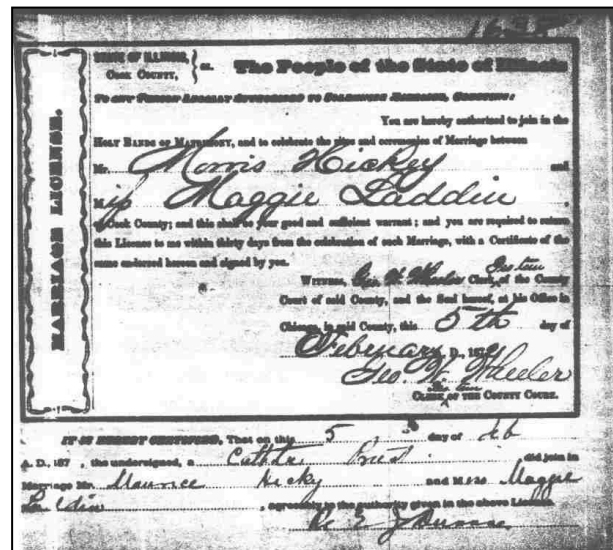 STATE OF ILLINOIS,
COOK COUNTY, } ss. The People of the State of Illinois
To any Person Legally Authorized to Solemnize Marriage, Greeting:
MARRIAGE LICENSE.
You are hereby authorized to join in the
HOLY BANDS OF MATRIMONY, and to celebrate the rites and ceremonies of Marriage between
Mr. Morris Hickey and
Miss Maggie Laddin,
of Cook County; and this shall be your good and sufficient warrant; and you are required to return
this License to me within thirty days from the celebration of such Marriage, with a Certificate of the
same endorsed hereon and signed by you.
WITNESS, Geo. W. Wheeler Clerk of the County
Court of said County, and the Seal hereof, at his Office in
Chicago, in said County, this 5th day of
February A. D., 187
Geo. W. Wheeler
CLERK OF THE COUNTY COURT.
IT IS HEREBY CERTIFIED, That on this 5 day of Feb
A. D., 187 , the undersigned, a did join in
Marriage Mr. Maurice Hicky and Miss Maggie
, agreeably to the authority given in the above License.